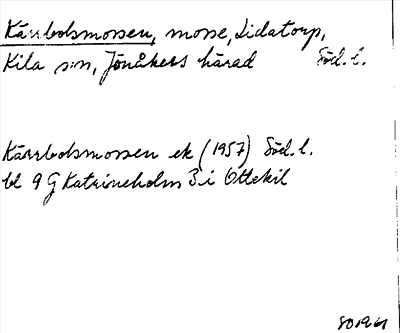 Kärrbolsmossen, mosse, Lidatorp,
Kila sn, Jönåkers härad Söd. l.
Kärrbolsmossen ek (1957) Söd. l.
bl 9 G Katrineholm 3 i Ottekil
SO 1961